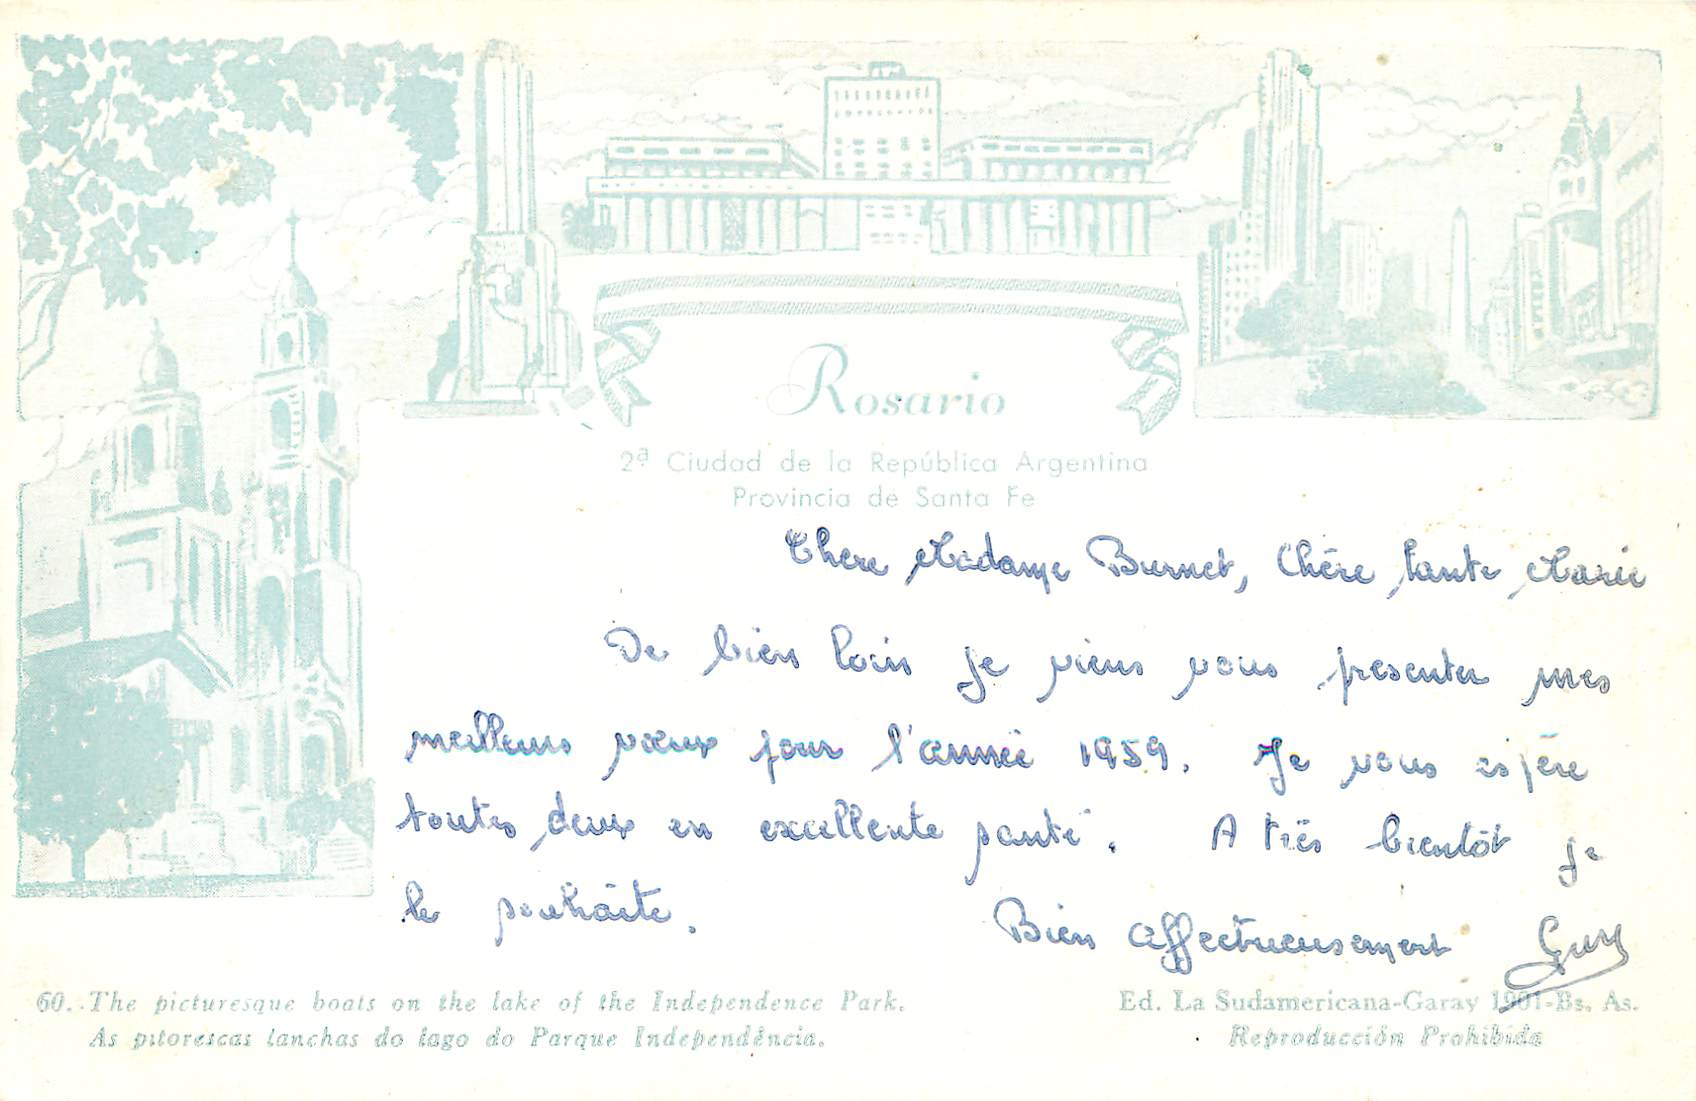 Rosario
2ª Ciudad de la República Argentina
Provincia de Santa Fe
Chere Madame Burnet, Chère tante Marie
De bien loin je viens vous presenter mes
meilleurs vœux pour l'année 1959. Je vous espère
toutes deux en excellente santé. A très bientôt je
le souhaite.
Bien affectueusement Guy
60.-The picturesque boats on the lake of the Independence Park.
As pitorescas lanchas do lago do Parque Independência.
Ed. La Sudamericana-Garay 1901-Bs. As.
Reproducción Prohibida